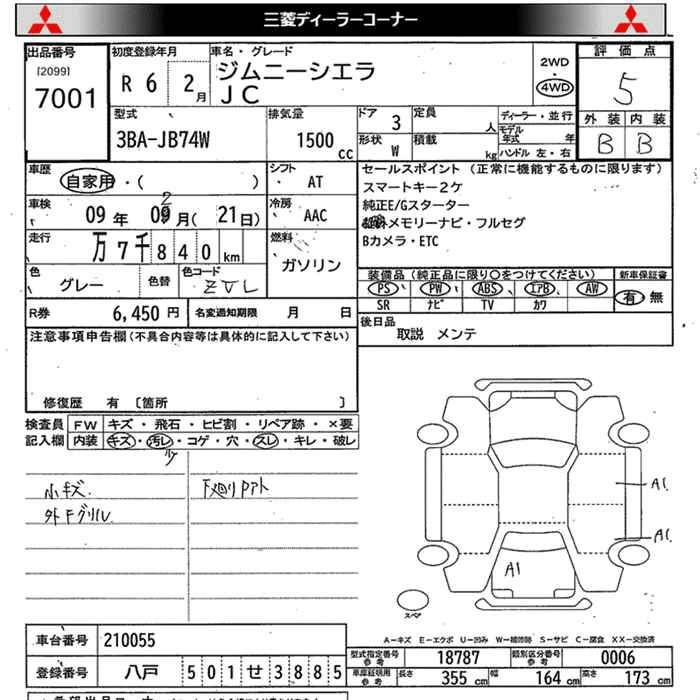 三菱ディーラーコーナー
出品番号
[2099]
7001
初度登録年月
R 6 2月
車名・グレード
ジムニーシエラ
JC
2WD
4WD
評価点
5
外装 内装
B B
型式
3BA-JB74W
排気量
1500 cc
ドア 3
形状 W
定員 人
積載 kg
ディーラー・並行
モデル年式 年
ハンドル 左・右
車歴
自家用・( )
シフト
AT
車検
09年 09月(21日)
2
冷房
AAC
走行
万7千840km
燃料
ガソリン
色
グレー
色替
色コード
ZVL
セールスポイント(正常に機能するものに限ります)
スマートキー2ケ
純正E/Gスターター
メモリーナビ・フルセグ
Bカメラ・ETC
装備品(純正品に限り○をつけてください)
PS PW ABS エアB AW
SR ナビ TV カワ
新車保証書
有・無
R券 6,450円
名変通知期限 月 日
後日品
取説 メンテ
注意事項申告欄(不具合内容等は具体的に記入して下さい)
修復歴 有 〔箇所 〕
検査員記入欄
FW キズ・飛石・ヒビ割・リペア跡・×要
内装 キズ・汚レ・コゲ・穴・スレ・キレ・破レ
小キズ
外Fグリル
下廻りPアト
A1
A1
A1
スペア
A-キズ E-エクボ U-凹み W-補修跡 S-サビ C-腐食 XX-交換済
車台番号 210055
登録番号 八戸 501せ3885
型式指定番号 参考 18787
類別区分番号 参考 0006
車庫証明用 参考 長さ 355cm 幅 164cm 高さ 173cm